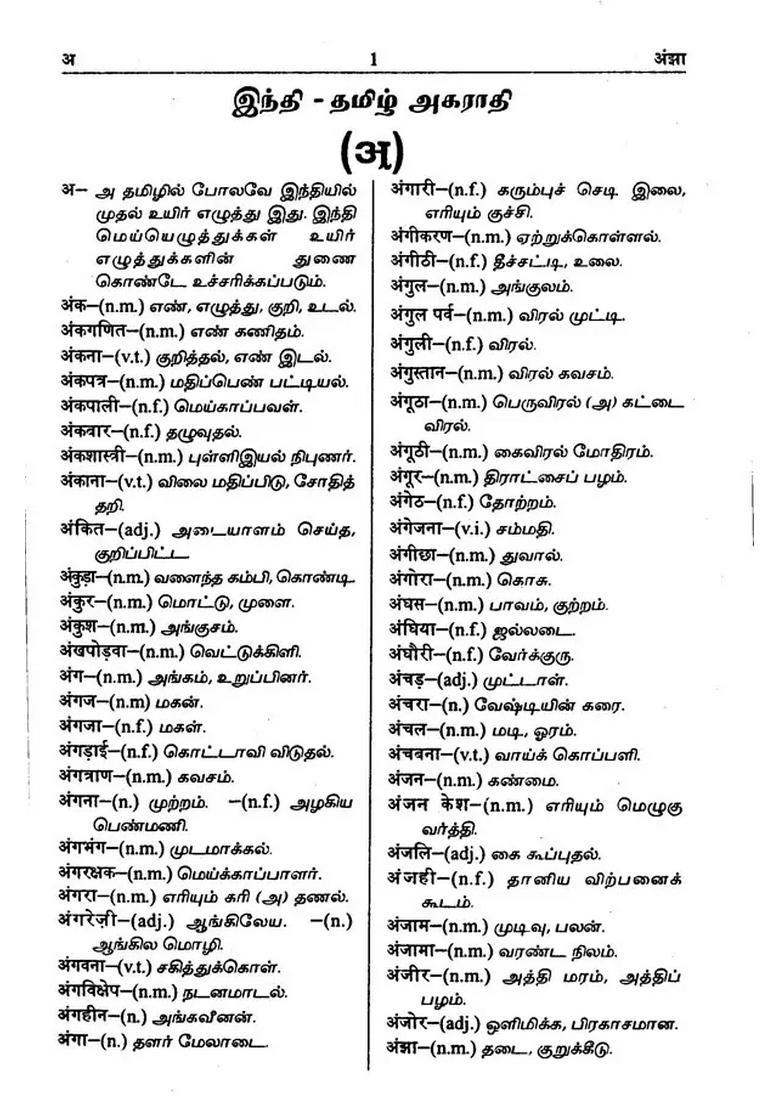 अ 1 अंझा
இந்தி - தமிழ் அகராதி
(अ)
अ– அ தமிழில் போலவே இந்தியில்
முதல் உயிர் எழுத்து இது. இந்தி
மெய்யெழுத்துக்கள் உயிர்
எழுத்துக்களின் துணை
கொண்டே உச்சரிக்கப்படும்.
अंक–(n.m.) எண், எழுத்து, குறி, உடல்.
अंकगणित–(n.m.) எண் கணிதம்.
अंकना–(v.t.) குறித்தல், எண் இடல்.
अंकपत्र–(n.m.) மதிப்பெண் பட்டியல்.
अंकपाली–(n.f.) மெய்காப்பவள்.
अंकवार–(n.f.) தழுவுதல்.
अंकशास्त्री–(n.m.) புள்ளிஇயல் நிபுணர்.
अंकाना–(v.t.) விலை மதிப்பிடு, சோதித்
தறி.
अंकित–(adj.) அடையாளம் செய்த,
குறிப்பிட்ட
अंकुड़ा–(n.m.) வளைந்த கம்பி, கொண்டி.
अंकुर–(n.m.) மொட்டு, முளை.
अंकुश–(n.m.) அங்குசம்.
अंखपोड़वा–(n.m.) வெட்டுக்கிளி.
अंग–(n.m.) அங்கம், உறுப்பினர்.
अंगज–(n.m) மகன்.
अंगजा–(n.f.) மகள்.
अंगड़ाई–(n.f.) கொட்டாவி விடுதல்.
अंगत्राण–(n.m.) கவசம்.
अंगना–(n.) முற்றம். –(n.f.) அழகிய
பெண்மணி.
अंगभंग–(n.m.) முடமாக்கல்.
अंगरक्षक–(n.m.) மெய்க்காப்பாளர்.
अंगरा–(n.m.) எரியும் கரி (அ) தணல்.
अंगरेज़ी–(adj.) ஆங்கிலேய. –(n.)
ஆங்கில மொழி.
अंगवना–(v.t.) சகித்துக்கொள்.
अंगविक्षेप–(n.m.) நடனமாடல்.
अंगहीन–(n.) அங்கவீனன்.
अंगा–(n.) தளர் மேலாடை.
अंगारी–(n.f.) கரும்புச் செடி இலை,
எரியும் குச்சி.
अंगीकरण–(n.m.) ஏற்றுக்கொள்ளல்.
अंगीठी–(n.f.) தீச்சட்டி, உலை.
अंगुल–(n.m.) அங்குலம்.
अंगुल पर्व–(n.m.) விரல் முட்டி.
अंगुली–(n.f.) விரல்.
अंगुस्तान–(n.m.) விரல் கவசம்.
अंगूठा–(n.m.) பெருவிரல் (அ) கட்டை
விரல்.
अंगूठी–(n.m.) கைவிரல் மோதிரம்.
अंगूर–(n.m.) திராட்சைப் பழம்.
अंगेठ–(n.f.) தோற்றம்.
अंगेजना–(v.i.) சம்மதி.
अंगीछा–(n.m.) துவால்.
अंगोरा–(n.m.) கொசு.
अंघस–(n.m.) பாவம், குற்றம்.
अंघिया–(n.f.) ஜல்லடை.
अंघौरी–(n.f.) வேர்க்குரு.
अंचड़–(adj.) முட்டாள்.
अंचरा–(n.) வேஷ்டியின் கரை.
अंचल–(n.m.) மடி, ஓரம்.
अंचवना–(v.t.) வாய்க் கொப்பளி.
अंजन–(n.m.) கண்மை.
अंजन केश–(n.m.) எரியும் மெழுகு
வர்த்தி.
अंजलि–(adj.) கை கூப்புதல்.
अंजही–(n.f.) தானிய விற்பனைக்
கூடம்.
अंजाम–(n.m.) முடிவு, பலன்.
अंजामा–(n.m.) வரண்ட நிலம்.
अंजीर–(n.m.) அத்தி மரம், அத்திப்
பழம்.
अंजोर–(adj.) ஒளிமிக்க, பிரகாசமான.
अंझा–(n.m.) தடை, குறுக்கீடு.